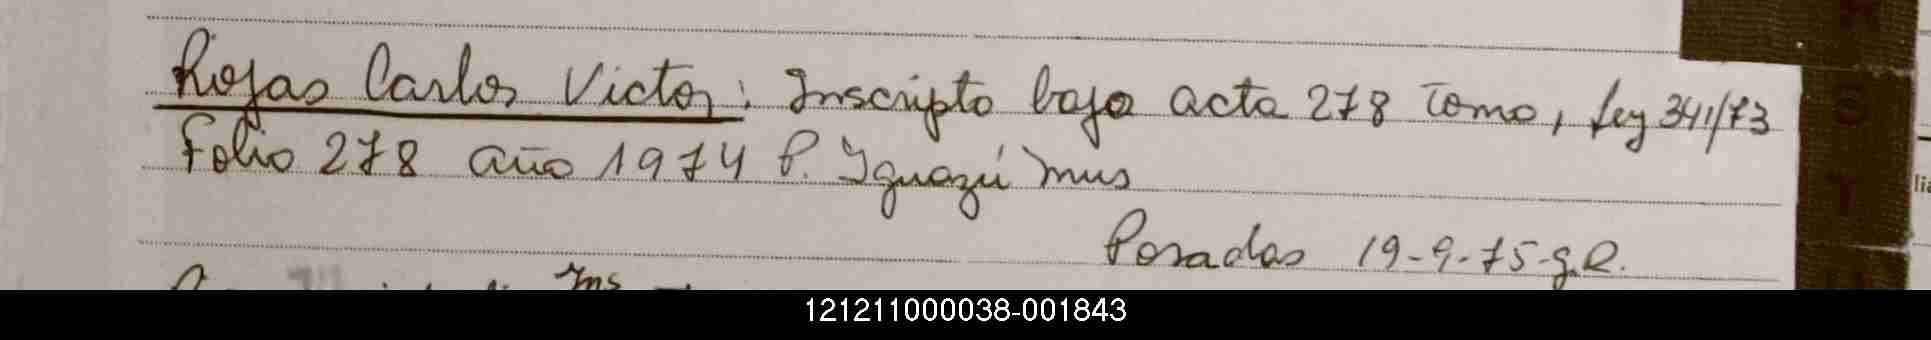 Rojas Carlos Victor: Inscripto bajo acta 278 Tomo, Ley 341/73
Folio 278 año 1974 P. Iguazú Mnes
Posadas 19-9-75-g.R.
Ins
121211000038-001843